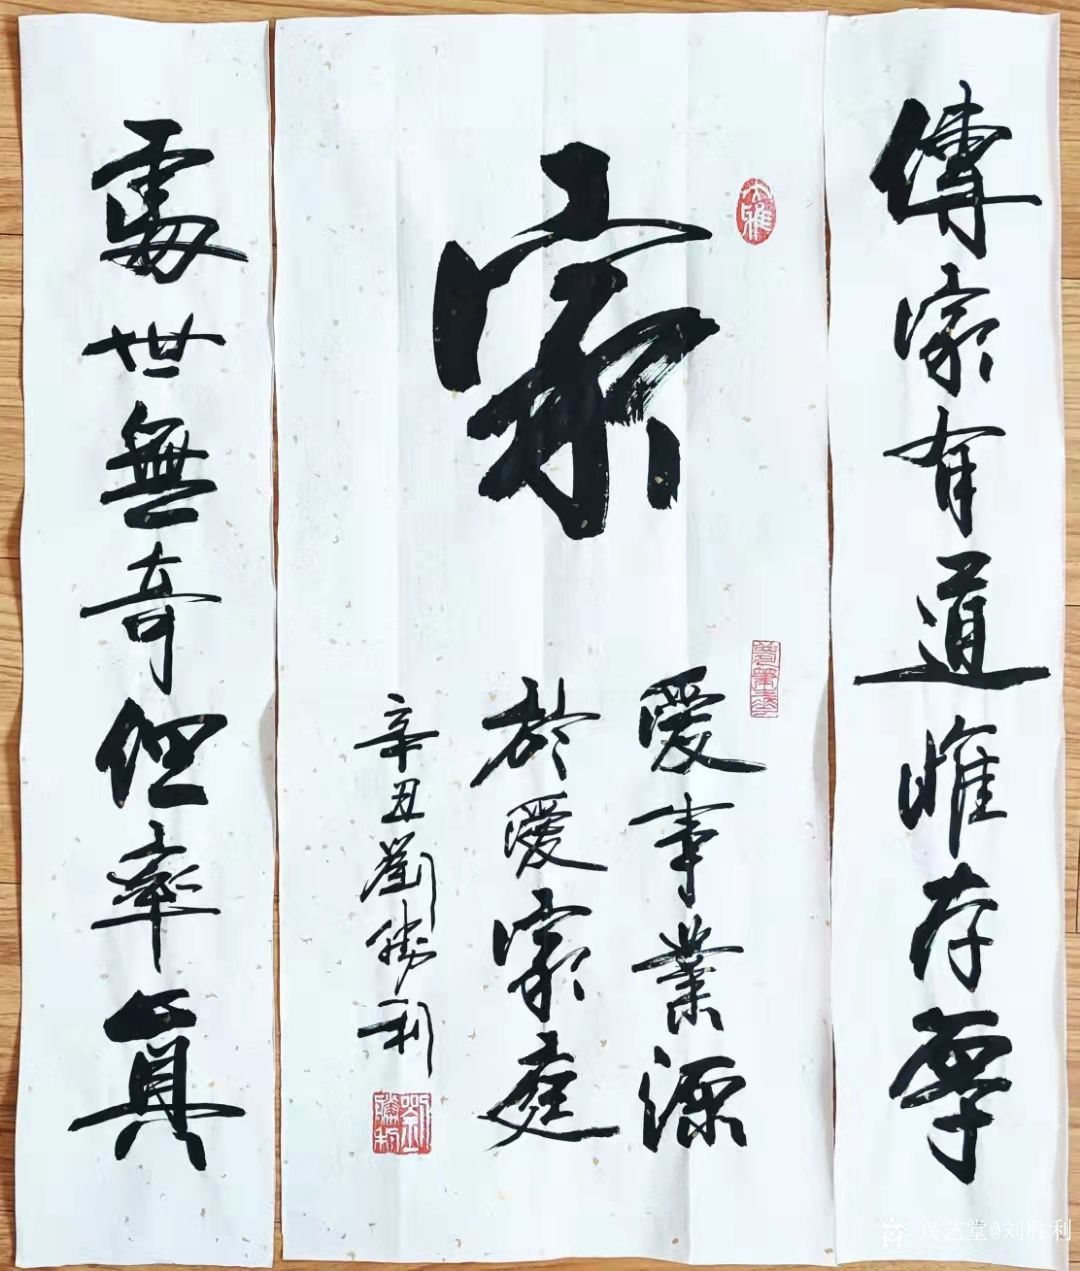 傳家有道惟存厚
大雅
家
愛事業源
於愛家庭
辛丑劉勝利
處世無奇但率真
兴艺堂@刘胜利